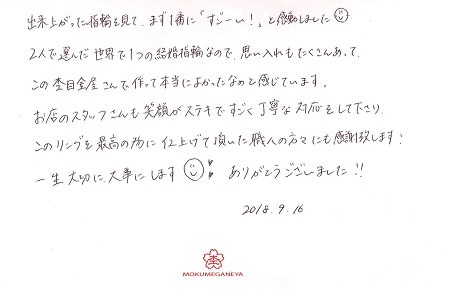 出来上がった指輪を見て、まず1番に「すごーい！」と感動しました
2人で選んだ世界で1つの結婚指輪なので、思い入れもたくさんあって、
この杢目金屋さんで作って本当によかったなぁと感じています。
お店のスタッフさんも笑顔がステキですごく丁寧な対応をして下さり、
このリングを最高の物に仕上げて頂いた職人の方々にも感謝致します！
一生大切に大事にします ありがとうございました!!
2018.9.16
MOKUMEGANEYA